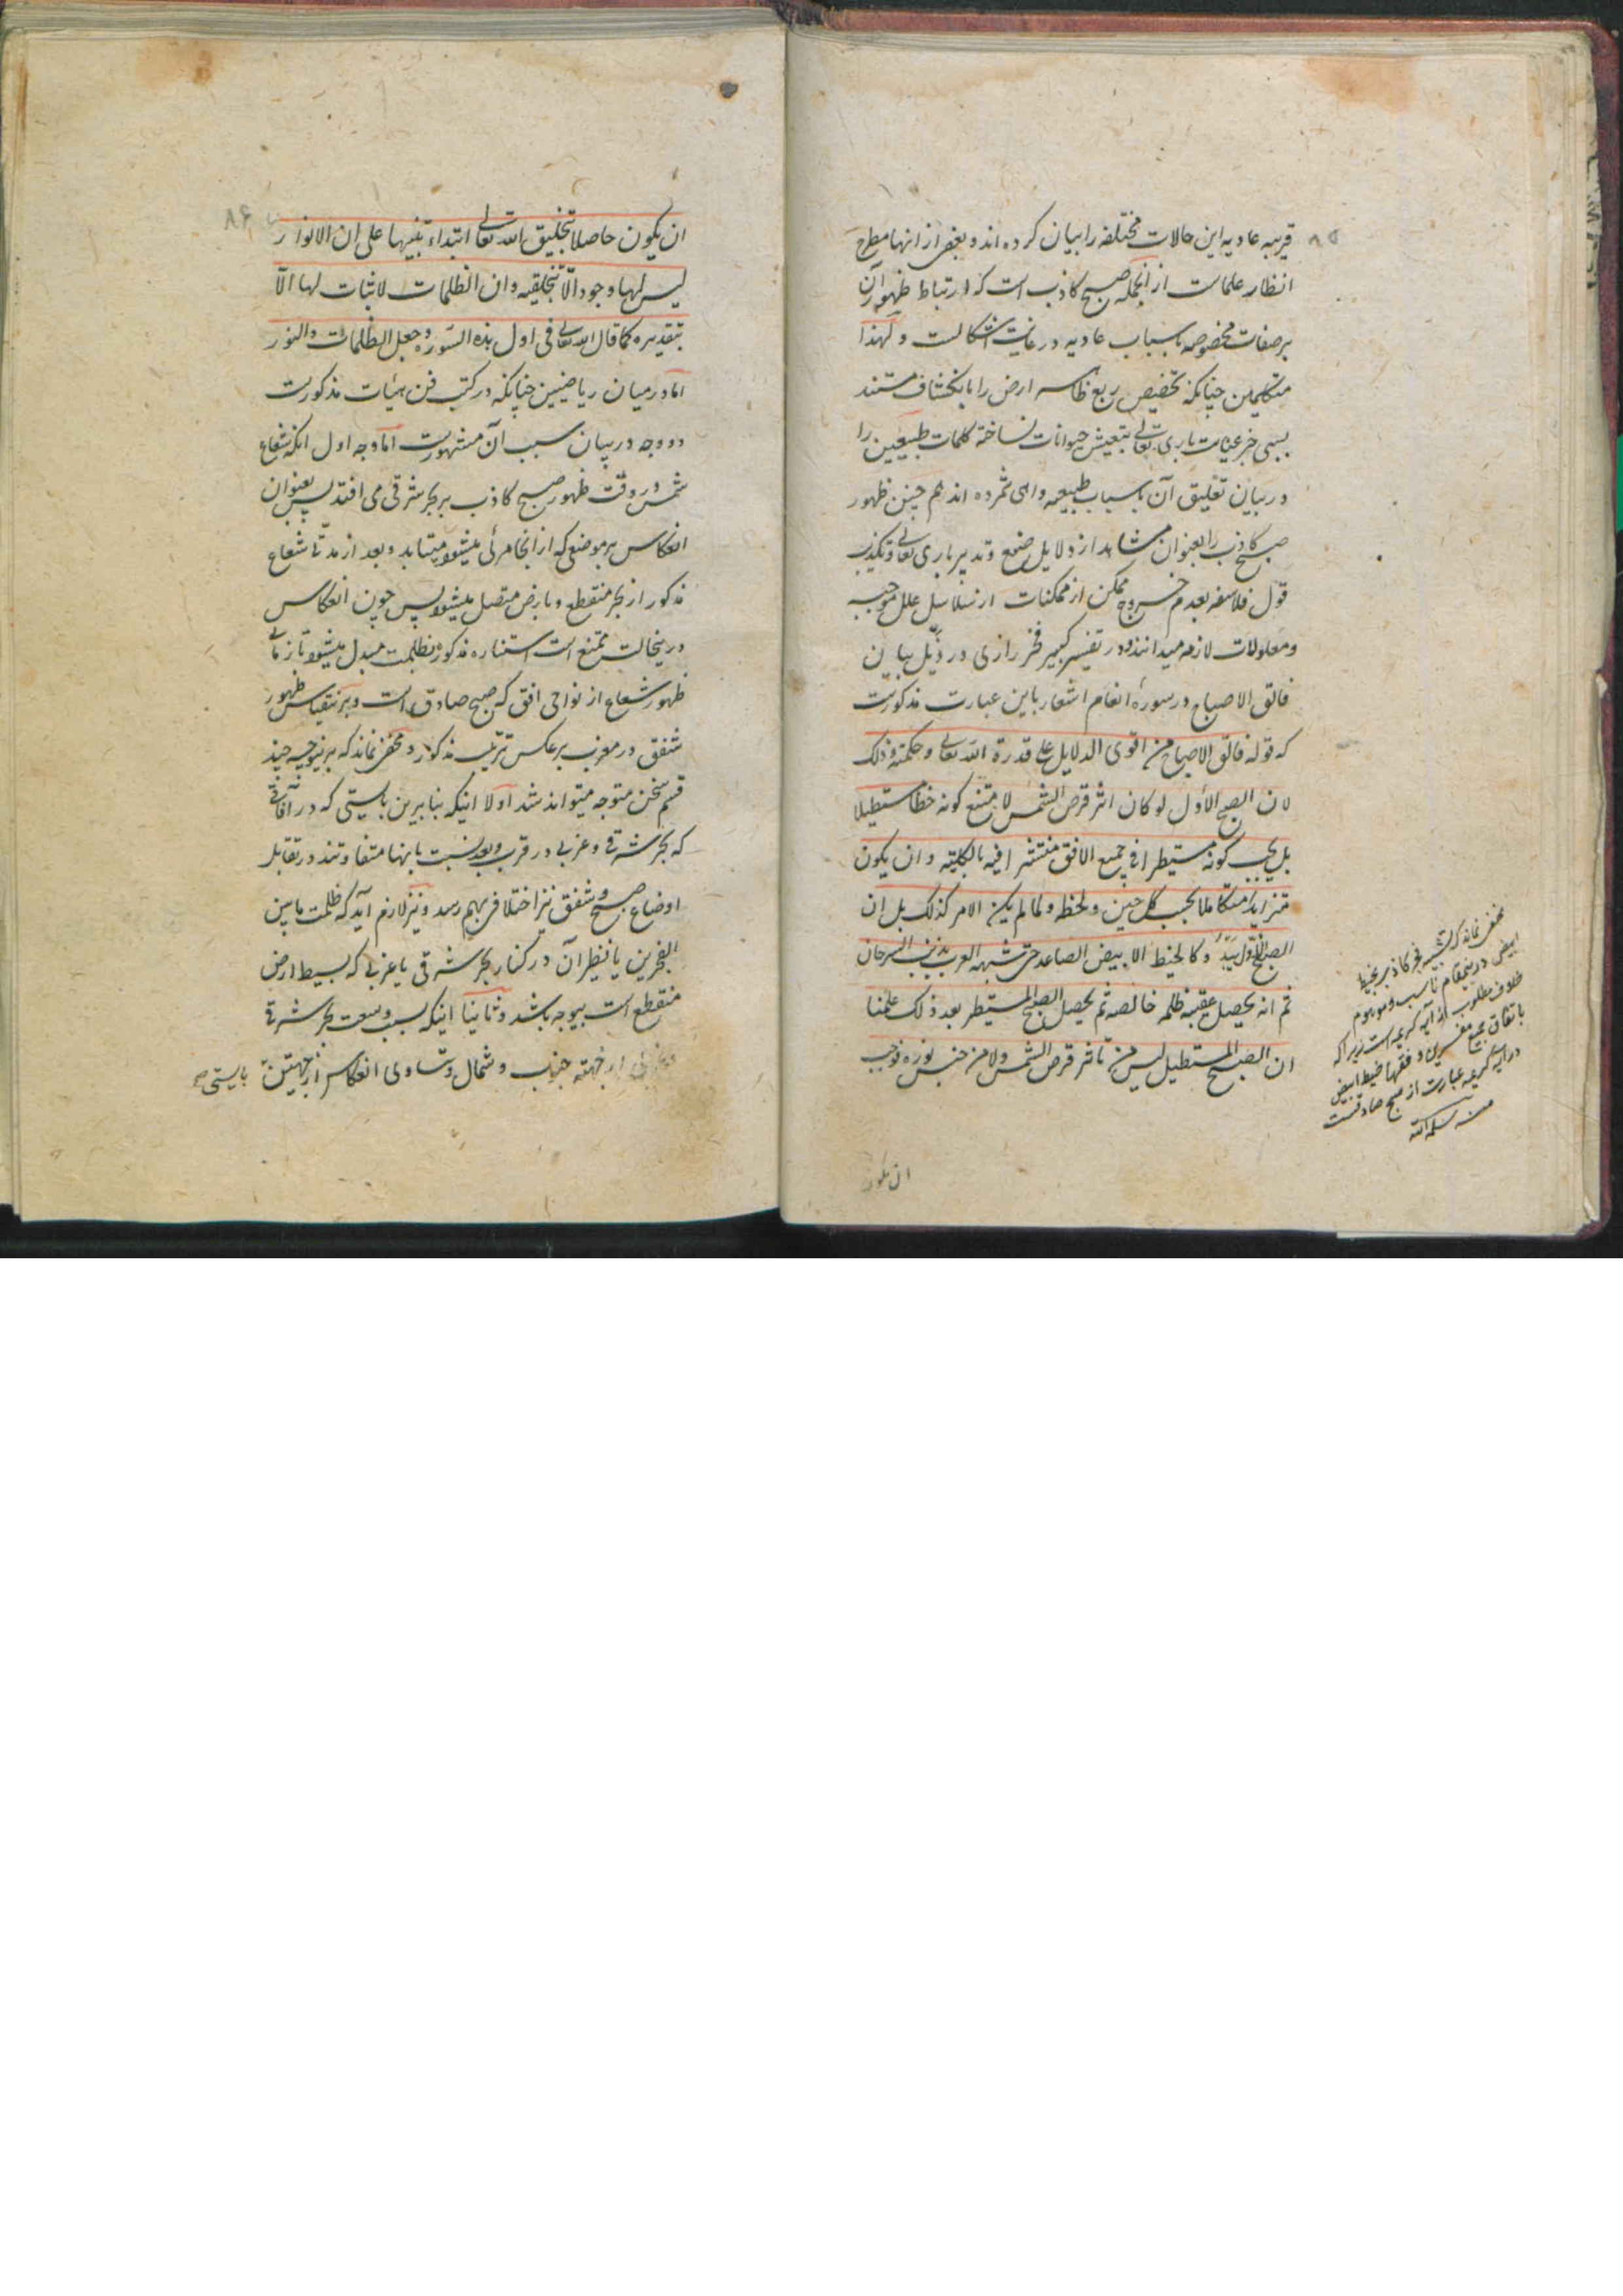 ۸۵
قریبه عادیه این حالات مختلفه را بیان کرده اند و بعض از انها مطرح
انظار علماست از انجمله صبح کاذب است که ارتباط ظهور آن
بر صفات مخصوصه باسباب عادیه در غایت اشکالست و لهذا
متکلمین چنانکه تخصیص ربع ارض را بانکشاف مستند
بسببی جز عنایت باری تعالی بتعیش حیوانات نساخته کلمات طبیعیین را
در بیان تعلیق آن باسباب طبیعیه واهی شمرده اند هم چنین ظهور
صبح کاذب را بعنوان مشاهد از دلایل صنع و تدبیر باری تعالی و تکذیب
قول فلاسفه بعدم خروج ممکن از ممکنات از سلاسل علل موجبه
و معلولات لازمه میدانند و در تفسیر کبیر فخر رازی در ذیل بیان
فالق الاصباح در سورهٔ انعام اشعار باین عبارت مذکورست
که قوله فالق الاصباح من اقوی الدلایل علی قدرة الله تعالی و حکمته و ذلک
لان الصبح الأول لو کان اثر قرص الشمس لامتنع کونه خطا مستطیلا
بل یجب کونه مستطیرا فی جمیع الافق منتشرا فیه بالکلیته و ان یکون
متزایدا متکاملا بحسب کل حین و لحظه و لما لم یکن الامر کذلک بل ان
الصبح الأول یبدُو کالخیط الابیض الصاعد حتی شبهه العرب بذنب السرحان
ثم انه یحصل عقیبه ظلمه خالصه ثم یحصل الصبح المستطیر بعد ذلک علمنا
ان الصبح المستطیل لیس من تاثیر قرص الشمس و لا من جنس نوره فوجب
ان یکون
مخفی نماند که تشبیه فجر کاذب بخیط
ابیض درینمقام نامناسب و موهوم
خلاف مطلوب از آیه کریمه است زیرا که
باتفاق جمیع مفسرین و فقها خیط ابیض
در آیه کریمه عبارت از صبح صادقست
منه سلمه الله
۸۶
ان یکون حاصلا بتخلیق الله تعالی ابتداء تنبیها علی ان الانوار
لیس لها وجود الّا بتخلیقه و ان الظلمات لا ثبات لها الّا
بتقدیره کما قال الله تعالی فی اول هذه السّوره و جعل الظلمات و النور
امّا در میان ریاضیین چنانکه در کتب فن هیئات مذکورست
دو وجه در بیان سبب آن مشهورست امّا وجه اول انکه شعاع
شمس در وقت ظهور صبح کاذب بر بحر شرقی می افتد پس بعنوان
انعکاس بر موضعی که از انجا مرئی میشود میتابد و بعد از مدتی شعاع
مذکور از بحر منقطع و بارض متصل میشود پس چون انعکاس
درینحالت ممتنع است استناره مذکوره بظلمت مبدل میشود تا زمان
ظهور شعاع از نواحی افق که صبح صادق است و برینقیاس ظهور
شفق در مغرب بر عکس ترتیب مذکور و مخفی نماند که برینوجه چند
قسم سخن متوجه میتواند شد اولا اینکه بنا برین بایستی که در آفاقی
که بحر شرقی و غربی در قرب و بعد نسبت بانها متفاوتند در تقابل
اوضاع صبح و شفق نیز اختلافی بهم رسد و نیز لازم آید که ظلمت مابین
الفجرین یا نظیر آن در کنار بحر شرقی یا غربی که بسیط ارض
منقطع است بیوجه باشد و ثانیا اینکه بسبب وسعت بحر شرقی
از جهته جنوب و شمال و تساوی انعکاس از جهتین بایستی صح